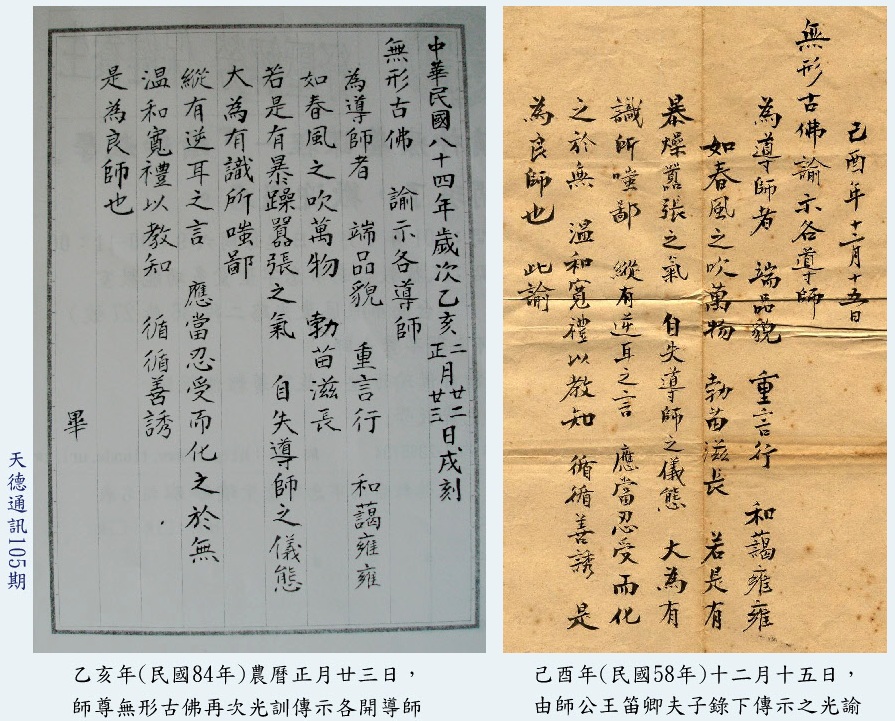 中華民國八十四年歲次乙亥二正月廿二廿三日戌刻
無形古佛 諭示各導師
為導師者 端品貌 重言行 和藹雍雍
如春風之吹萬物 勃苗滋長
若是有暴躁囂張之氣 自失導師之儀態
大為有識所嗤鄙
縱有逆耳之言 應當忍受而化之於無
温和寬禮以教知 循循善誘
是為良師也
畢
天德通訊105期
乙亥年(民國84年)農曆正月廿三日，
師尊無形古佛再次光訓傳示各開導師
己酉年十二月十五日
無形古佛諭示各導師
為導師者 端品貌 重言行 和藹雍雍
如春風之吹萬物 勃苗滋長 若是有
暴燥囂張之氣 自失導師之儀態 大為有
識所嗤鄙 縱有逆耳之言 應當忍受而化
之於無 温和寬禮以教知 循循善誘 是
為良師也 此諭
己酉年(民國58年)十二月十五日，
由師公王笛卿夫子錄下傳示之光諭